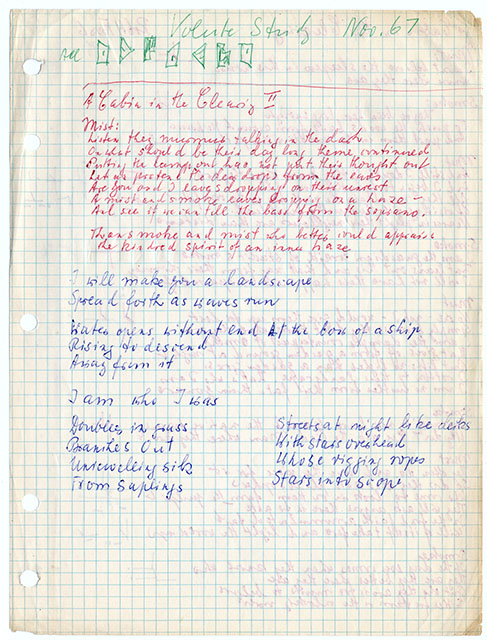 Volute Study Nov. 67
red
A Cabin in the Clearing II
Mist:
Listen they murmur talking in the dark
On what should be their day long theme continued
Putting the lamp out has not put their thought out
Let us pretend the dewdrops from the eaves
Are you and I eavesdropping on their unrest
A mist and smoke eaves dropping on a haze –
And see if we can tell the bass from the soprano.
Than smoke and mist who better could appraise
the kindred spirit of an inner haze
I will make you a landscape
Spread forth as waves run
Water opens without end At the bow of a ship
Rising to descend
Away from it
I am who I was
Doubles in grass
Branches Out
Unreeling silk
From Saplings
Streets at night like decks
With stars overhead
Whose rigging ropes
Stars into scope